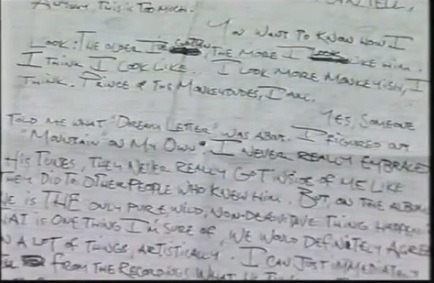 AUTUMN, THIS IS TOO MUCH.
CAN TELL,
YOU WANT TO KNOW HOW I
LOOK: THE OLDER I THE MORE I LIKE HIM.
I THINK I LOOK LIKE. I LOOK MORE MONKEYISH, I
THINK. PRINCE OF THE MONKEYDUDES, I AM.
YES, SOMEONE
TOLD ME WHAT "DREAM LETTER" WAS ABOUT. I FIGURED OUT
"MOUNTAIN" ON MY OWN. I NEVER REALLY EMBRACED
HIS TUNES, THEY NEVER REALLY GOT INSIDE OF ME LIKE
THEY DID TO OTHER PEOPLE WHO KNEW HIM. BUT, ON THE ALBUM
IS THE ONLY PURE, WILD, NON-DERIVATIVE THING
IS ONE THING I'M SURE OF, WE WOULD DEFINITELY AGREE
ON A LOT OF THINGS, ARTISTICALLY. I CAN JUST IMMEDIATELY
FROM THE RECORDINGS WHAT